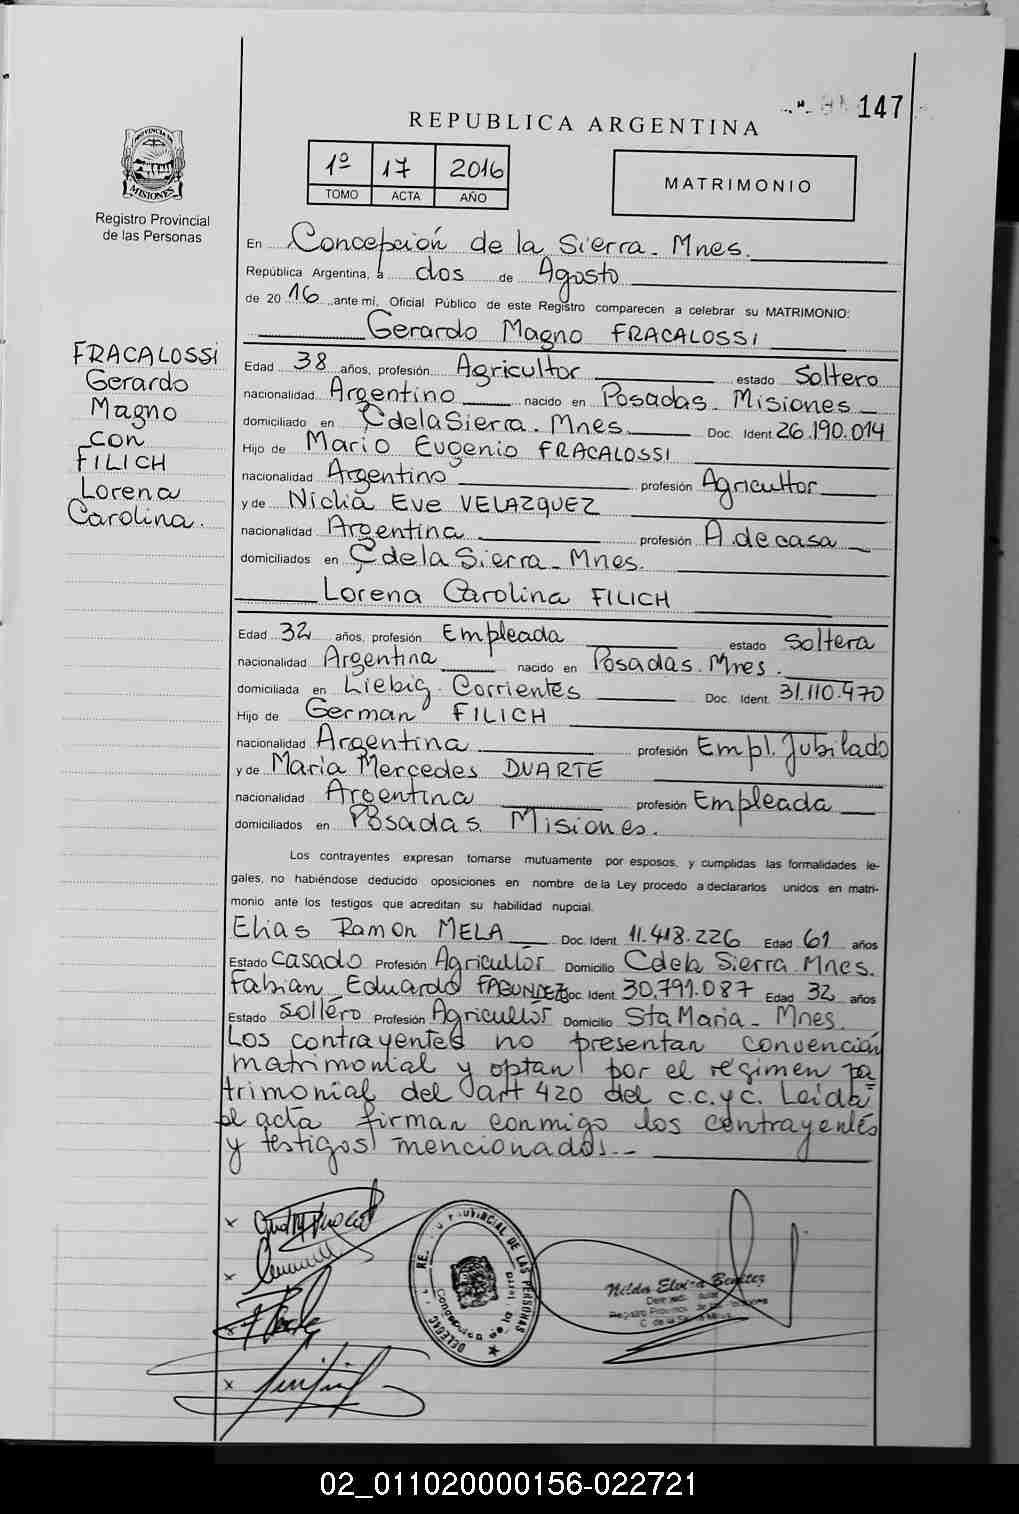 147
REPUBLICA ARGENTINA
PROVINCIA DE
MISIONES
Registro Provincial
de las Personas
1º 17 2016
TOMO ACTA AÑO
MATRIMONIO
En Concepción de la Sierra - Mnes.
República Argentina, a dos de Agosto
de 2016, ante mí, Oficial Público de este Registro comparecen a celebrar su MATRIMONIO:
Gerardo Magno FRACALOSSI
FRACALOSSI
Gerardo
Magno
con
FILICH
Lorena
Carolina.
Edad 38 años, profesión Agricultor estado Soltero
nacionalidad Argentino nacido en Posadas - Misiones
domiciliado en C de la Sierra - Mnes. Doc. Ident 26.190.014
Hijo de Mario Eugenio FRACALOSSI
nacionalidad Argentino profesión Agricultor
y de Niclia Eve VELAZQUEZ
nacionalidad Argentina profesión A. de casa
domiciliados en C de la Sierra - Mnes.
Lorena Carolina FILICH
Edad 32 años, profesión Empleada estado Soltera
nacionalidad Argentina nacido en Posadas - Mnes.
domiciliada en Liebig - Corrientes Doc. Ident. 31.110.470
Hijo de German FILICH
nacionalidad Argentina profesión Empl. Jubilado
y de Maria Mercedes DUARTE
nacionalidad Argentina profesión Empleada
domiciliados en Posadas Misiones.
Los contrayentes expresan tomarse mutuamente por esposos, y cumplidas las formalidades le-
gales, no habiéndose deducido oposiciones en nombre de la Ley procedo a declararlos unidos en matri-
monio ante los testigos que acreditan su habilidad nupcial.
Elias Ramon MELA Doc. Ident. 11.418.226 Edad 61 años
Estado Casado Profesión Agricultor Domicilio C de la Sierra Mnes.
Fabian Eduardo FAGUNDEZ Doc. Ident. 30.791.087 Edad 32 años
Estado Soltero Profesión Agricultor Domicilio Sta Maria - Mnes.
Los contrayentes no presentan convención
matrimonial y optan por el régimen pa
trimonial del art 420 del c.c.y c. Leida
el acta firman conmigo los contrayentes
y testigos mencionados.-
PROVINCIAL DE LAS PERSONAS
Nilda Elvira Benitez
02_011020000156-022721